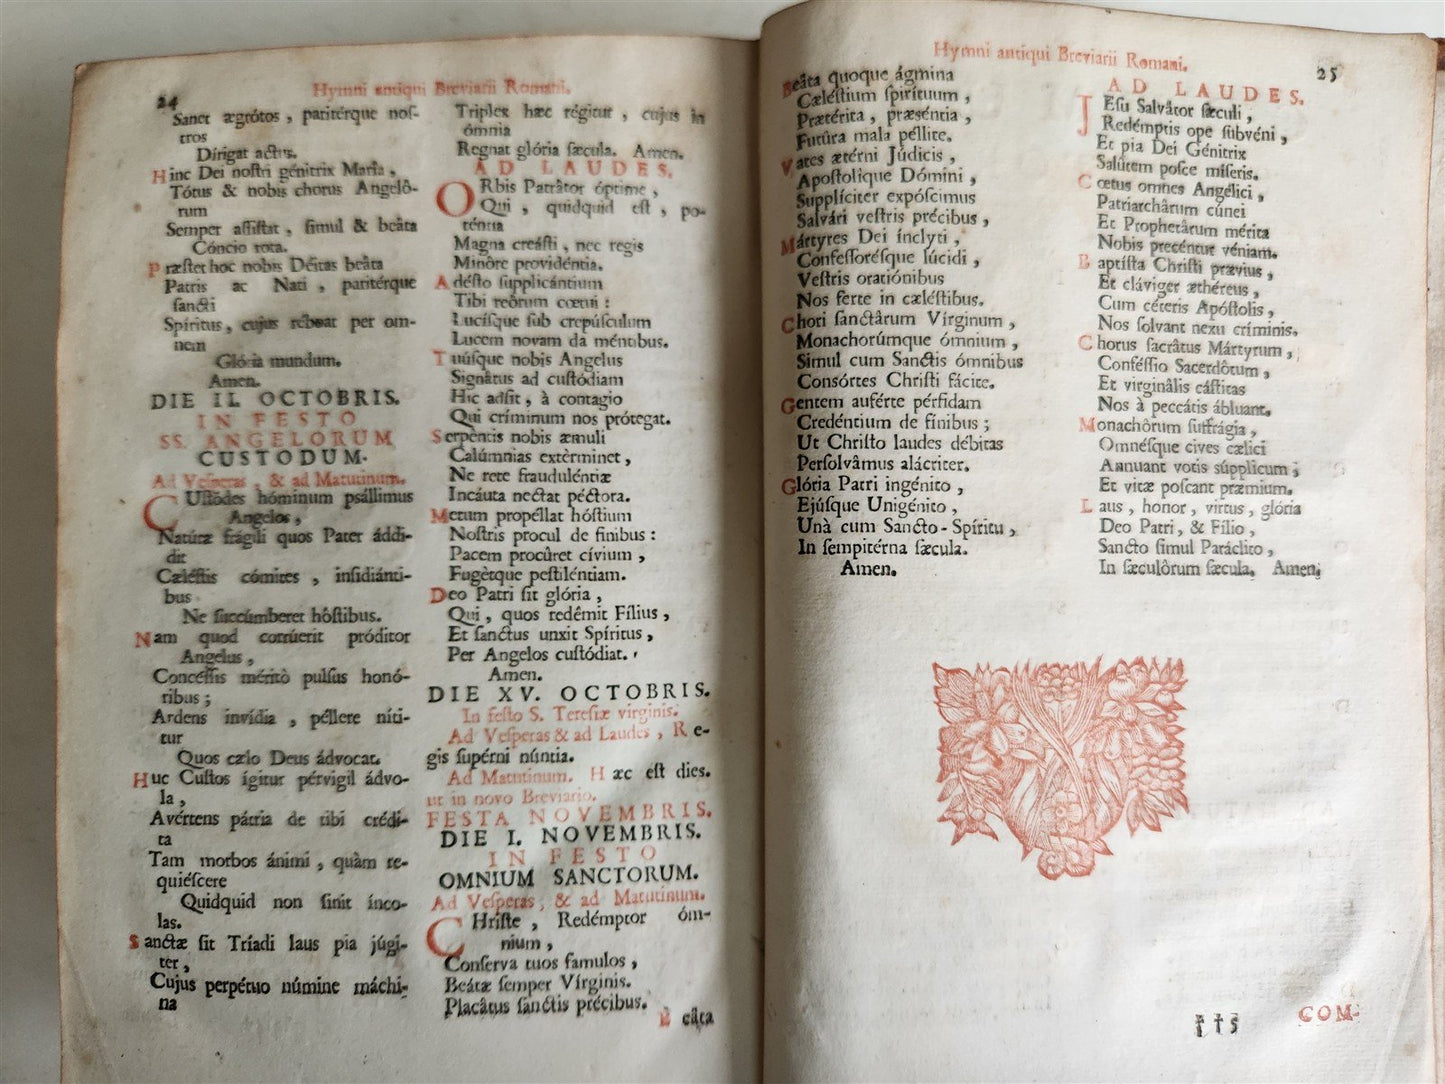 24
Hymni antiqui Breviarii Romani.
Sanet ægrótos, pariterque nos-
tros
Dírigat actus.
Hinc Dei nostri génitrix María,
Tótus & nobis chorus Angelô-
rum
Semper assistat, simul & beâta
Cóncio tota.
Præstet hoc nobis Déitas beâta
Patris ac Nati, paritérque
sancti
Spíritus, cujus reboat per om-
nem
Glória mundum.
Amen.
DIE II. OCTOBRIS.
IN FESTO
SS. ANGELORUM
CUSTODUM.
Ad Vesperas, & ad Matutinum.
CUstôdes hóminum psállimus
Angelos,
Natúræ frágili quos Pater áddi-
dit
Cæléstis cómites, insidiánti-
bus
Ne succúmberet hôstibus.
Nam quod corrúerit próditor
Angelus,
Concéssis méritò pulsus honó-
ribus;
Ardens invídia, péllere níti-
tur
Quos cælo Deus ádvocat.
Huc Custos ígitur pérvigil ádvo-
la,
Avértens pátria de tibi crédi-
ta
Tam morbos ánimi, quàm re-
quiéscere
Quidquid non sinit inco-
las.
Sanctæ sit Tríadi laus pia júgi-
ter,
Cujus perpétuo númine máchi-
na
Triplex hæc régitur, cujus in
ómnia
Regnat glória sæcula. Amen.
AD LAUDES.
ORbis Patrâtor óptime,
Qui, quidquid est, po-
téntia
Magna creásti, nec regis
Minôre providéntia.
Adésto supplicántium
Tibi reôrum cœtui:
Lucísque sub crepúsculum
Lucem novam da méntibus.
Tuúsque nobis Angelus
Signâtus ad custódiam
Hic adsit, à contagio
Qui críminum nos prótegat.
Serpéntis nobis æmuli
Calúmnias extèrminet,
Ne rete frauduléntiæ
Incáuta nectat péctora.
Metum propéllat hóstium
Nostris procul de finibus:
Pacem procûret cívium,
Fugètque pestiléntiam.
Deo Patri sit glória,
Qui, quos redêmit Fílius,
Et sanctus unxit Spíritus,
Per Angelos custódiat.
Amen.
DIE XV. OCTOBRIS.
In festo S. Teresiæ virginis.
Ad Vesperas & ad Laudes, Re-
gis supérni núntia.
Ad Matutinum. Hæc est dies.
ut in novo Breviario.
FESTA NOVEMBRIS.
DIE I. NOVEMBRIS.
IN FESTO
OMNIUM SANCTORUM.
Ad Vesperas, & ad Matutinum.
CHriste, Redémptor óm-
nium,
Conserva tuos famulos,
Beátæ semper Vírginis.
Placâtus sanctis précibus.
Beâta
Hymni antiqui Breviarii Romani.
25
Beâta quoque ágmina
Cæléstium spirítuum,
Prætérita, præséntia,
Futûra mala péllite.
Vates ætérni Júdicis,
Apostolíque Dómini,
Supplíciter expóscimus
Salvári vestris précibus,
Mártyres Dei ínclyti,
Confessorésque lúcidi,
Vestris oratiónibus
Nos ferte in cæléstibus.
Chori sanctârum Vírginum,
Monachorúmque ómnium,
Simul cum Sanctis ómnibus
Consórtes Christi fácite.
Gentem auférte pérfidam
Credéntium de fínibus;
Ut Christo laudes débitas
Persolvâmus alácriter.
Glória Patri ingénito,
Ejúsque Unigénito,
Unà cum Sancto-Spíritu,
In sempitérna sæcula.
Amen.
AD LAUDES.
JEsu Salvâtor sæculi,
Redémptis ope súbvéni,
Et pia Dei Génitrix
Salûtem posce míseris.
Cœtus omnes Angélici,
Patriarchârum cúnei
Et Prophetârum mérita
Nobis precéntur véniam.
Baptísta Christi prævius,
Et cláviger æthéreus,
Cum céteris Apóstolis,
Nos solvant nexu críminis.
Chorus sacrâtus Mártyrum,
Conféssio Sacerdôtum,
Et virginâlis cástitas
Nos à peccátis ábluant.
Monachôrum suffrágia,
Omnésque cives cælici
Annuant votis súpplicum;
Et vitæ poscant præmium.
Laus, honor, virtus, glória
Deo Patri, & Fílio,
Sancto simul Paráclito,
In sæculôrum sæcula. Amen.
††5
COM-